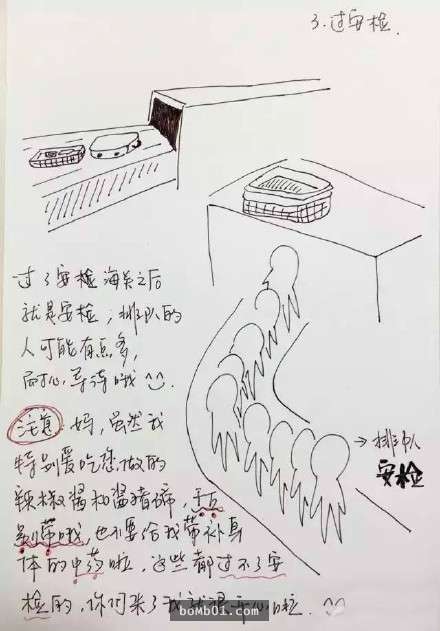 3.过安检.
过了安检海关之后
就是安检，排队的
人可能有点多，
耐心等待哦
注意：妈，虽然我
特别爱吃您做的
辣椒酱和酱猪蹄，千万
别带哦，也不要给我带补身
体的中药啦，这些都过不了安
检的，你们来了我就很开心啦.
→排队
安检
bomb01.com